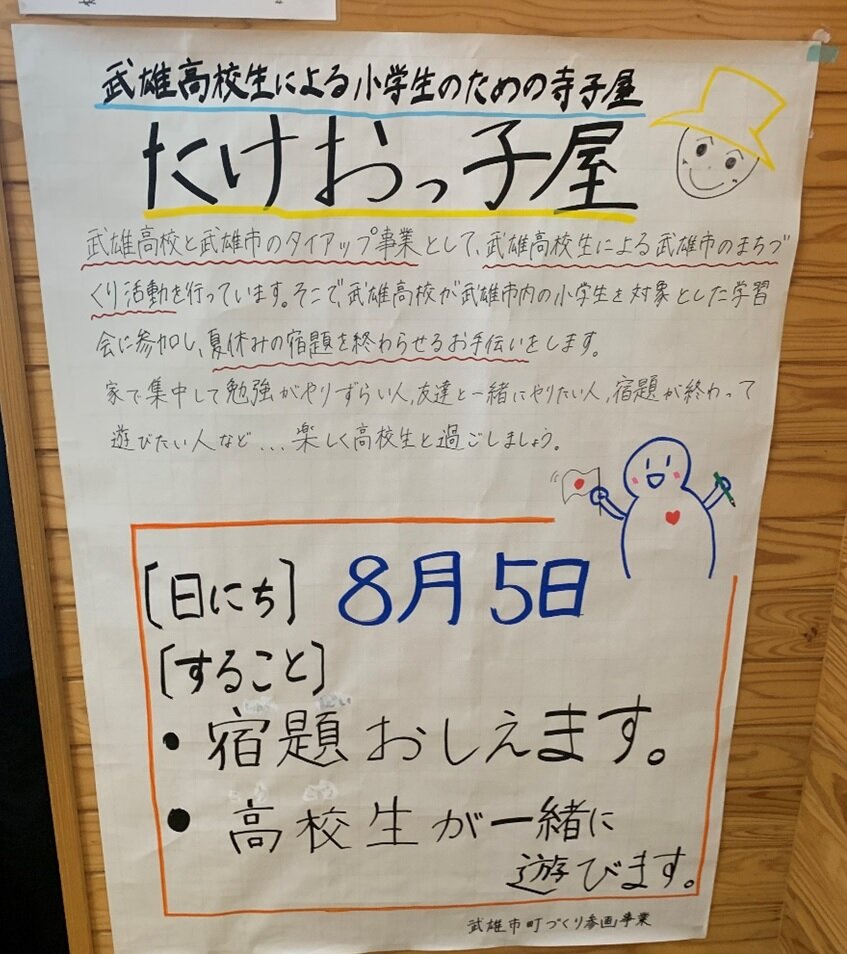 武雄高校生による小学生のための寺子屋
たけおっ子屋
武雄高校と武雄市のタイアップ事業として、武雄高校生による武雄市のまちづ
くり活動を行っています。そこで、武雄高校が武雄市内の小学生を対象とした学習
会に参加し、夏休みの宿題を終わらせるお手伝いをします。
家で集中して勉強がやりずらい人、友達と一緒にやりたい人、宿題が終わって
遊びたい人など...楽しく高校生と過ごしましょう。
[日にち] 8月5日
[すること]
・宿題おしえます。
・高校生が一緒に
遊びます。
武雄市町づくり参画事業